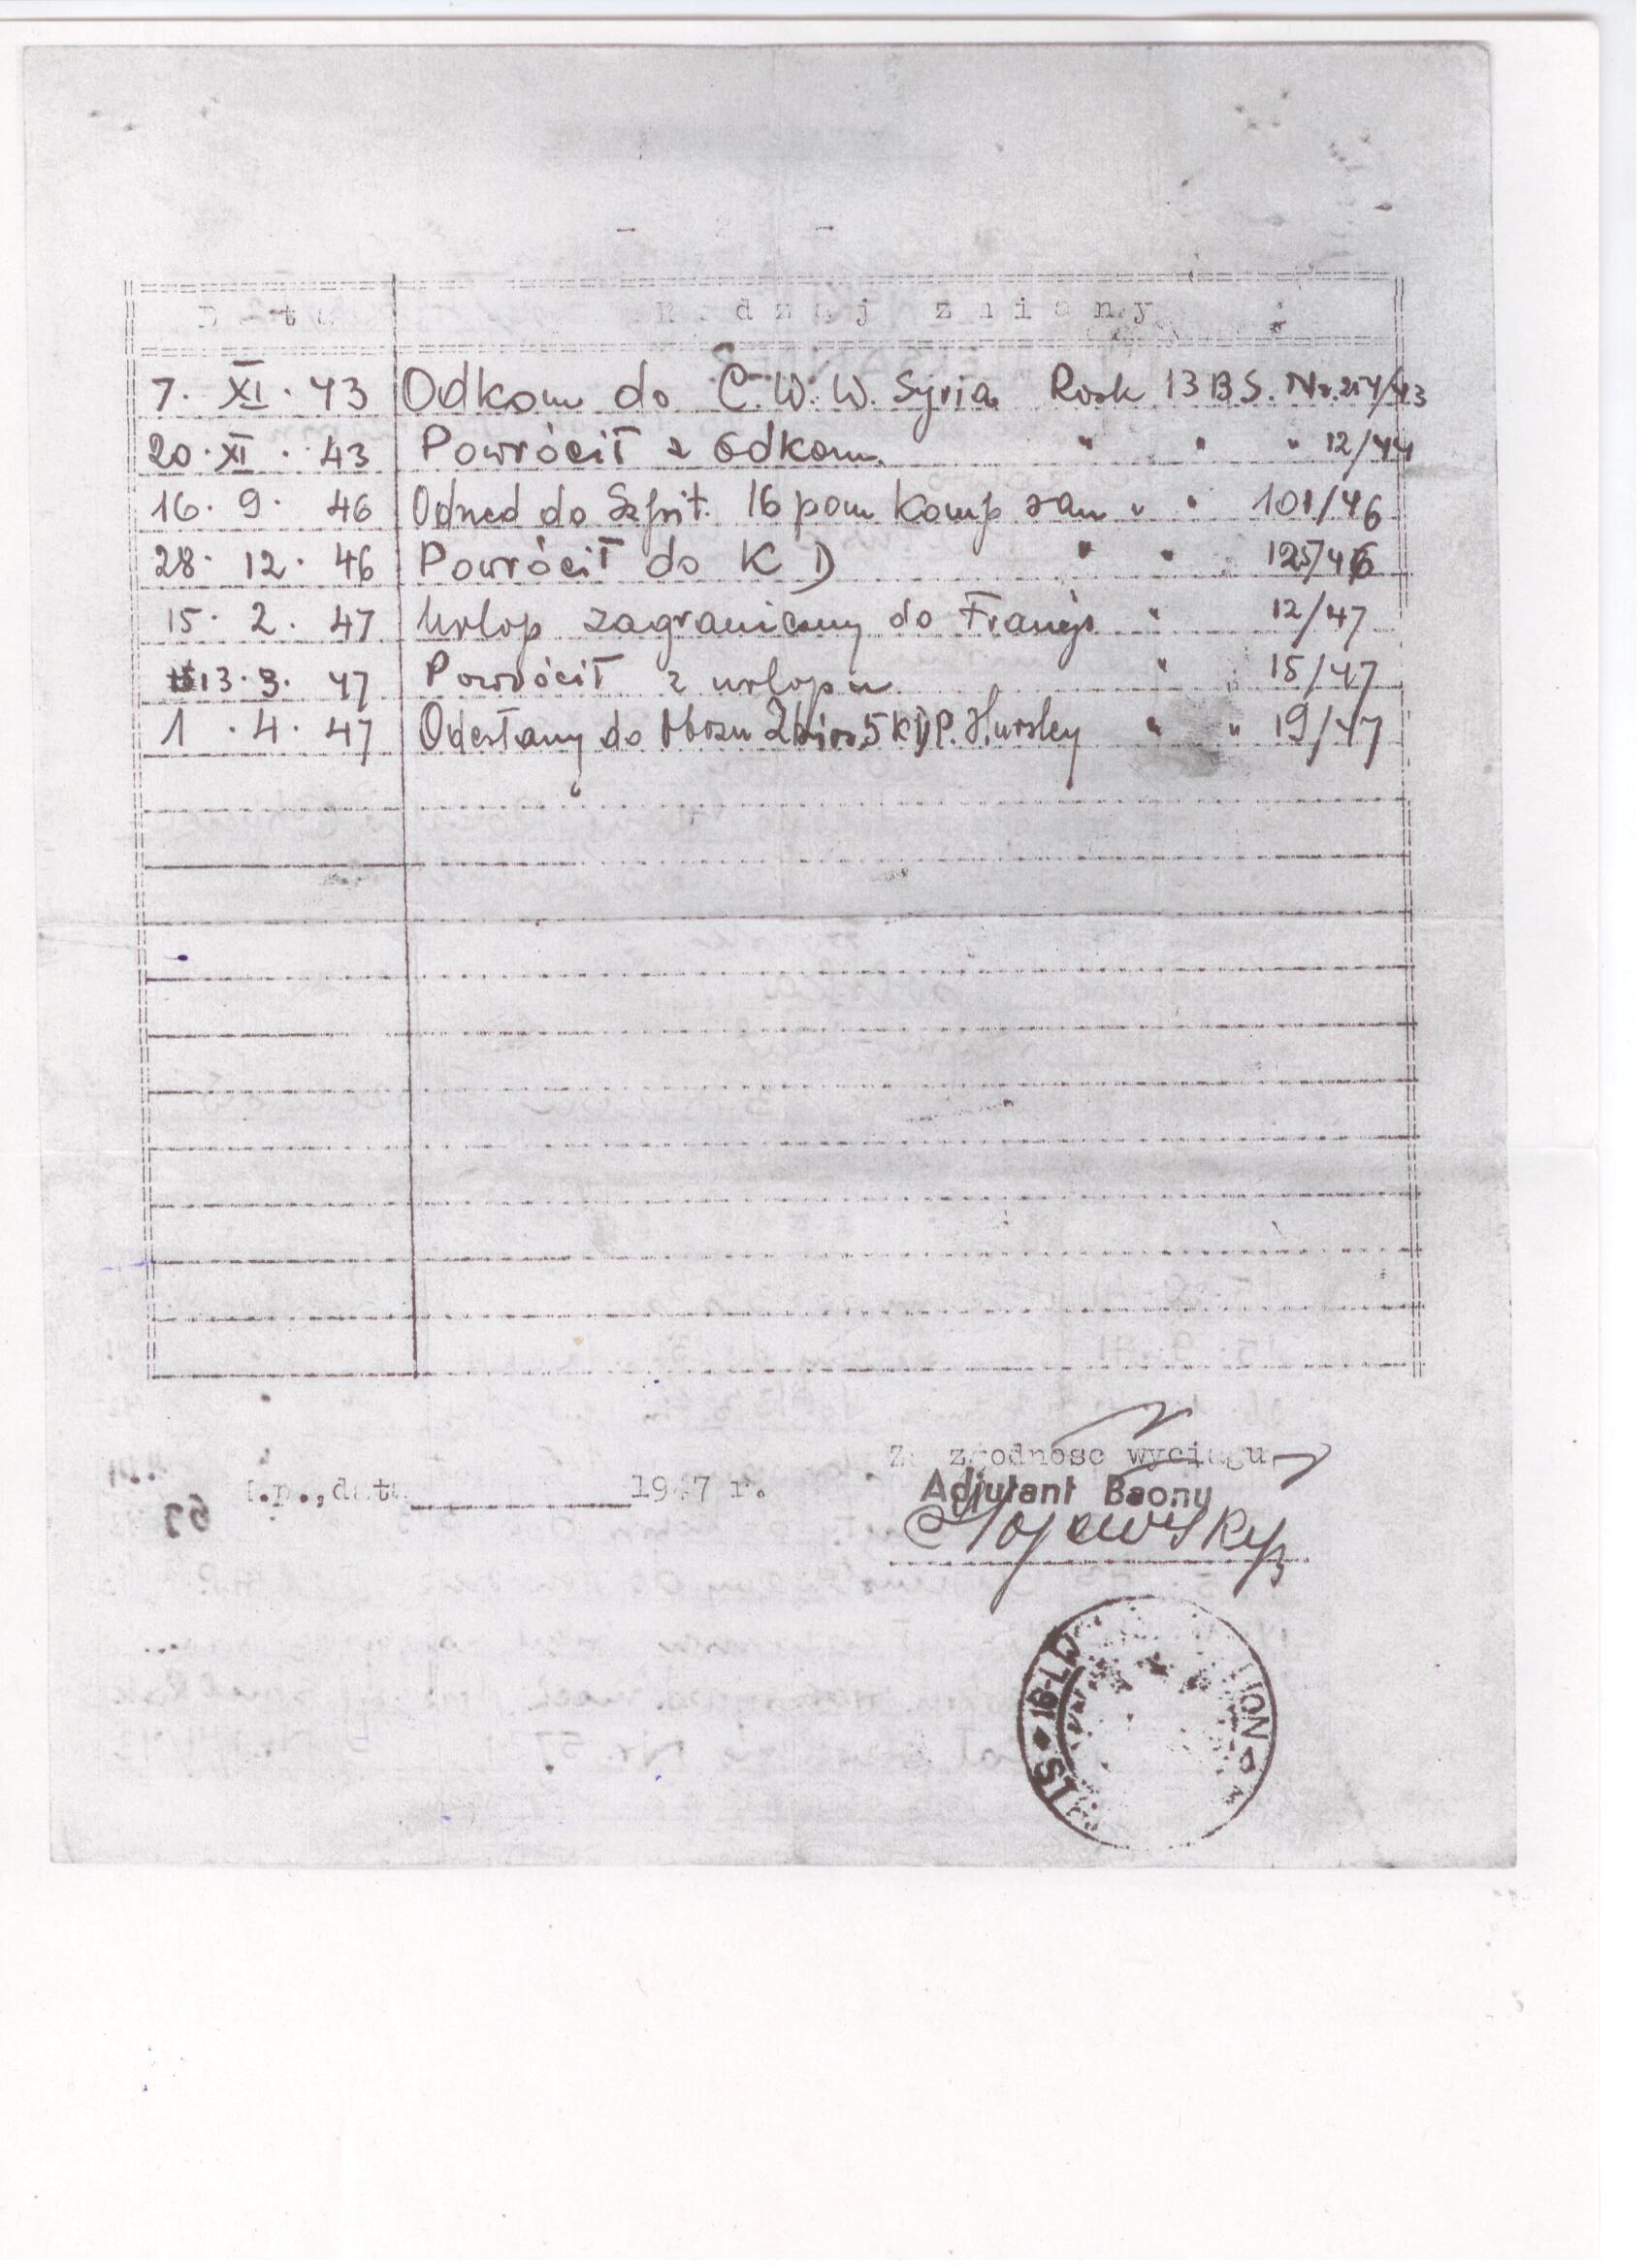 - 2 -
Data Rodzaj zmiany
7. XI. 43 Odkom do C.W.W. Syria Rozk 13 B.S. Nr. 214/43
20. XI. 43 Powrócił z odkom. " " " 12/44
16. 9. 46 Odszed do Szpit. 16 pom Komp san " " 101/46
28. 12. 46 Powrócił do K D " " 125/46
15. 2. 47 Urlop zagraniczny do Francji " 12/47
13. 3. 47 Powrócił z urlopu " 15/47
1. 4. 47 Odesłany do Obozu Zbior. 5 KDP. Hursley " " 19/47
m.p., data 1947 r.
Za zgodność wyciągu
Adjutant Baonu
LS • 16-LW
ION